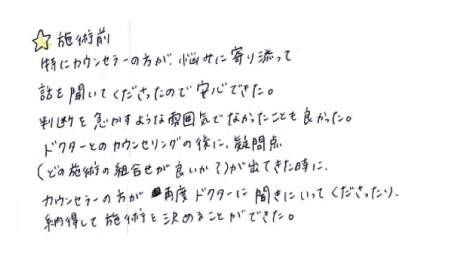 ☆ 施術前
特にカウンセラーの方が、悩みに寄り添って
話を聞いてくださったので安心できた。
判断を急かすような雰囲気でなかったことも良かった。
ドクターとのカウンセリングの後に、疑問点
(どの施術の組合せが良いか?)が出てきた時に、
カウンセラーの方が再度ドクターに聞きにいってくださったり、
納得して施術を決めることができた。